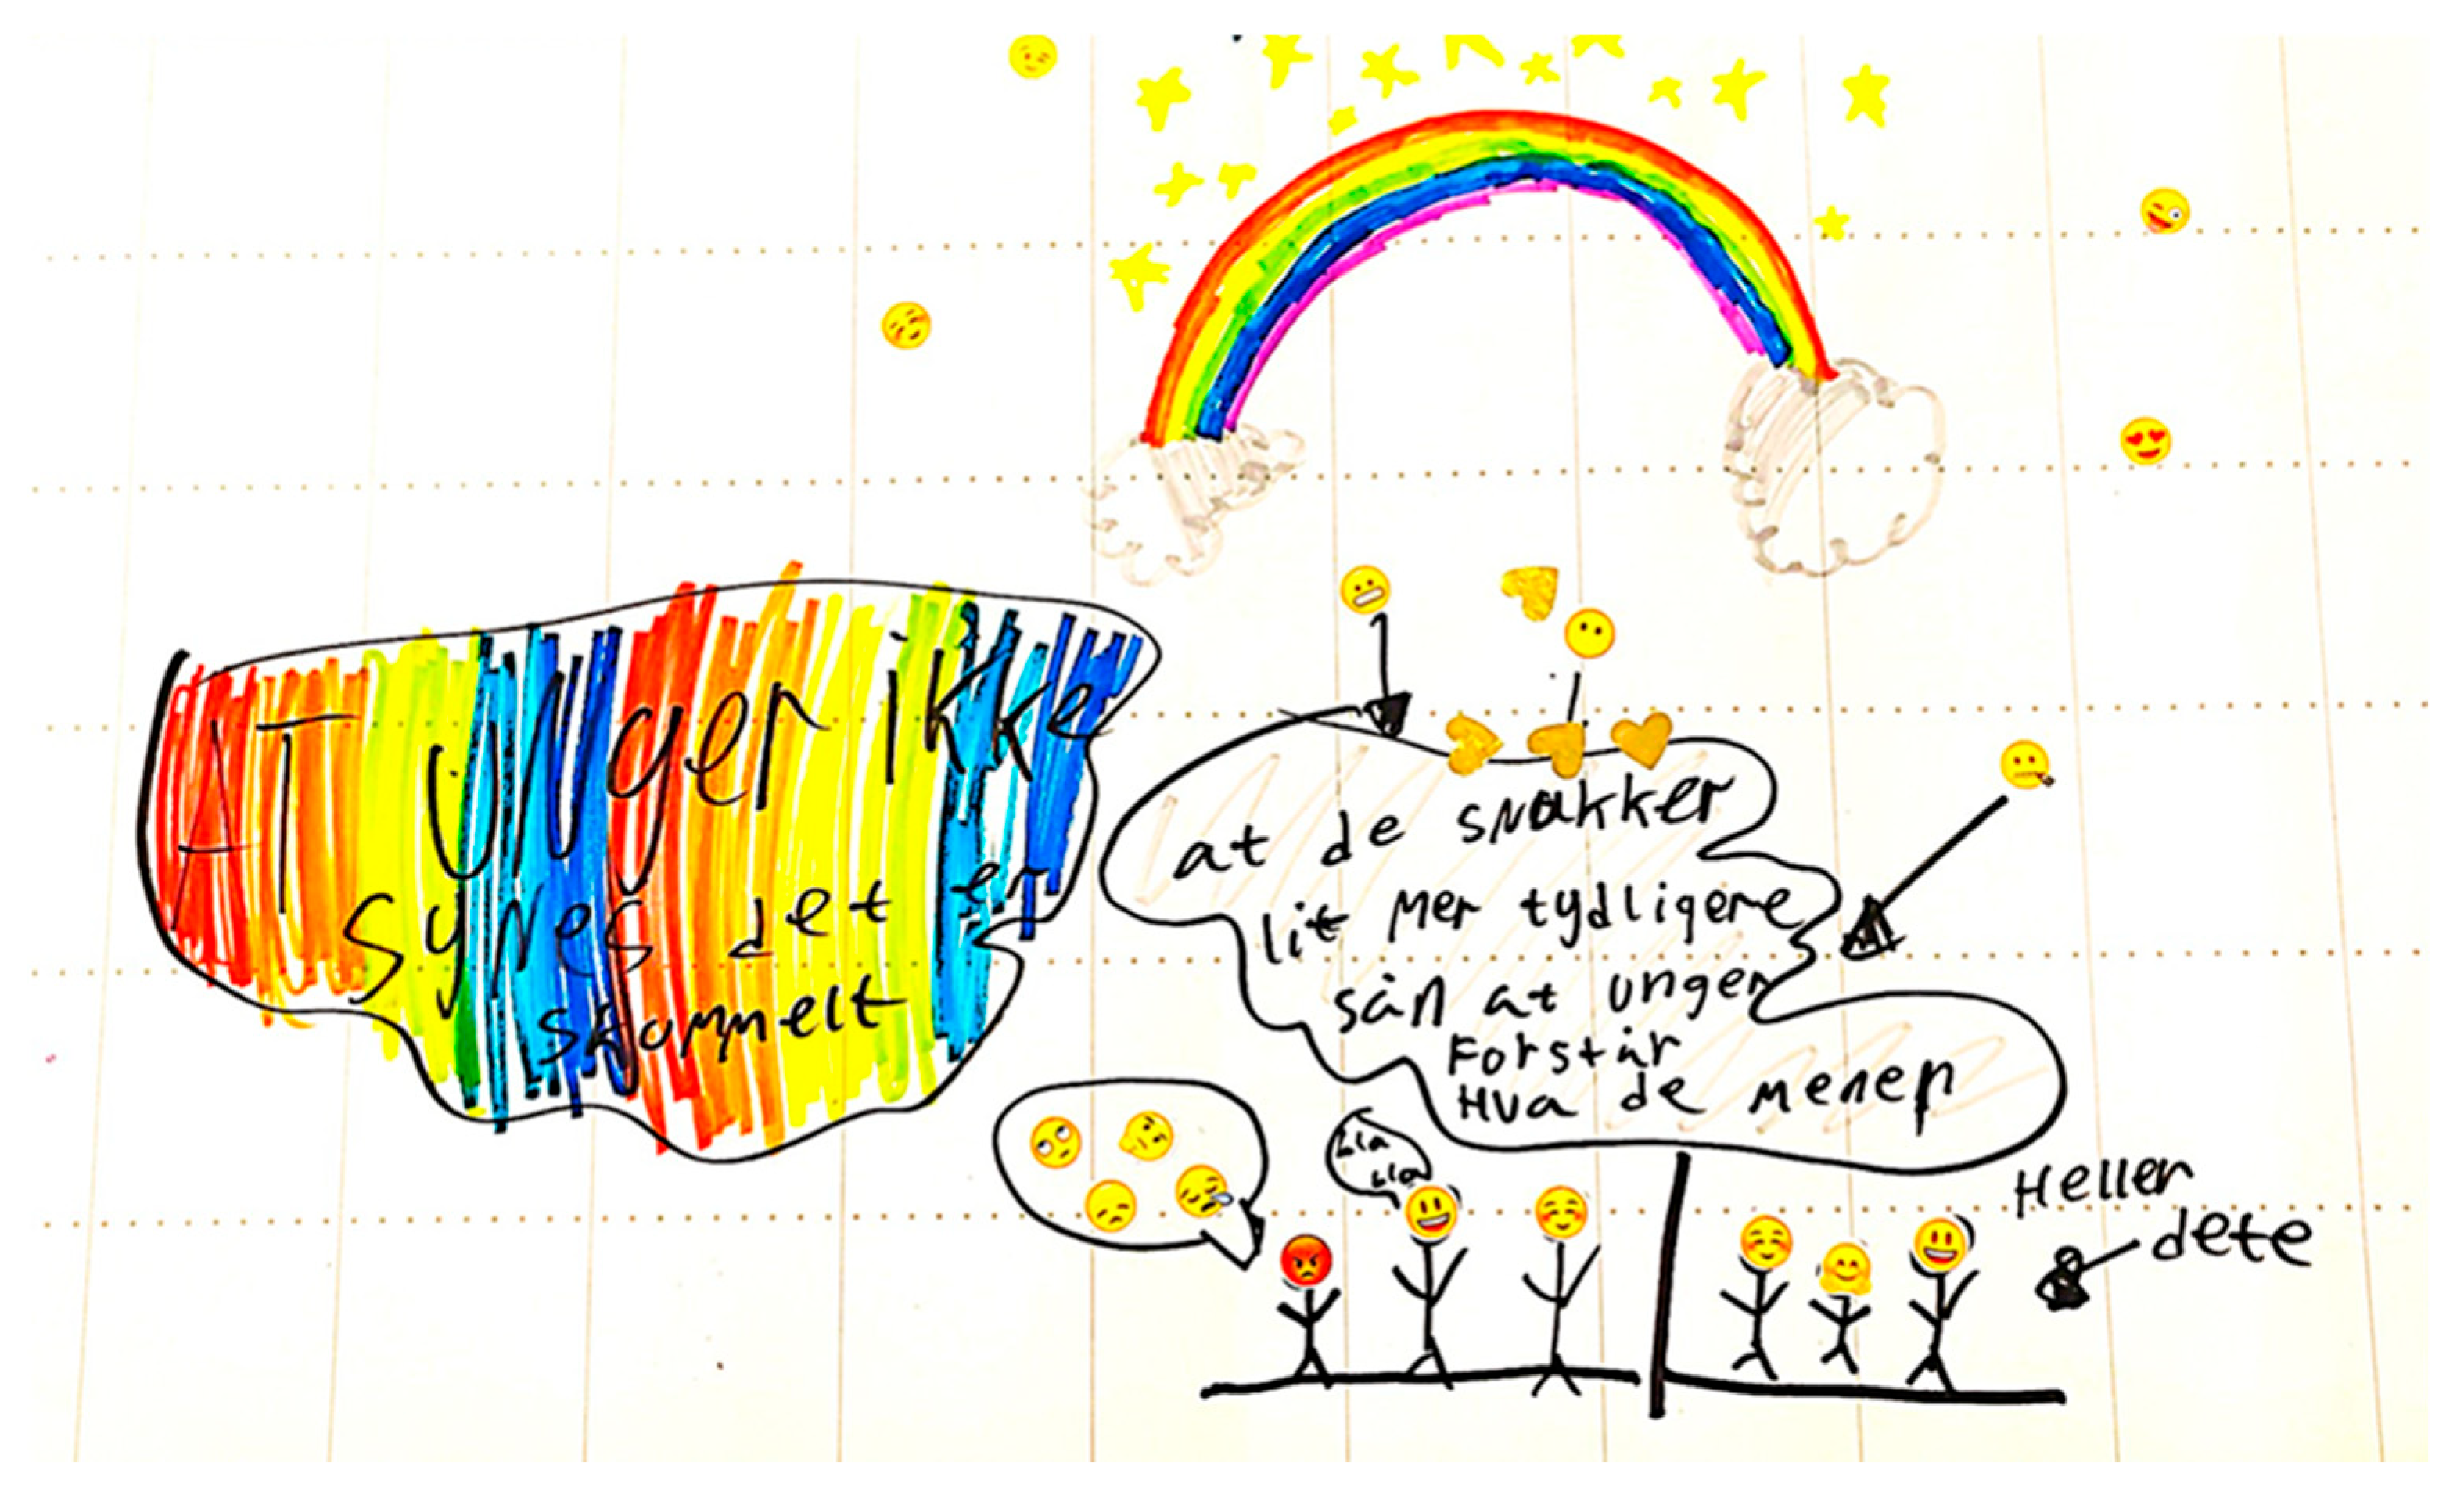 AT unger ikke
synes det er
skummelt
at de snakker
lit mer tydligere
sån at unger
Forstår
Hva de mener
bla
bla
Heller
dete